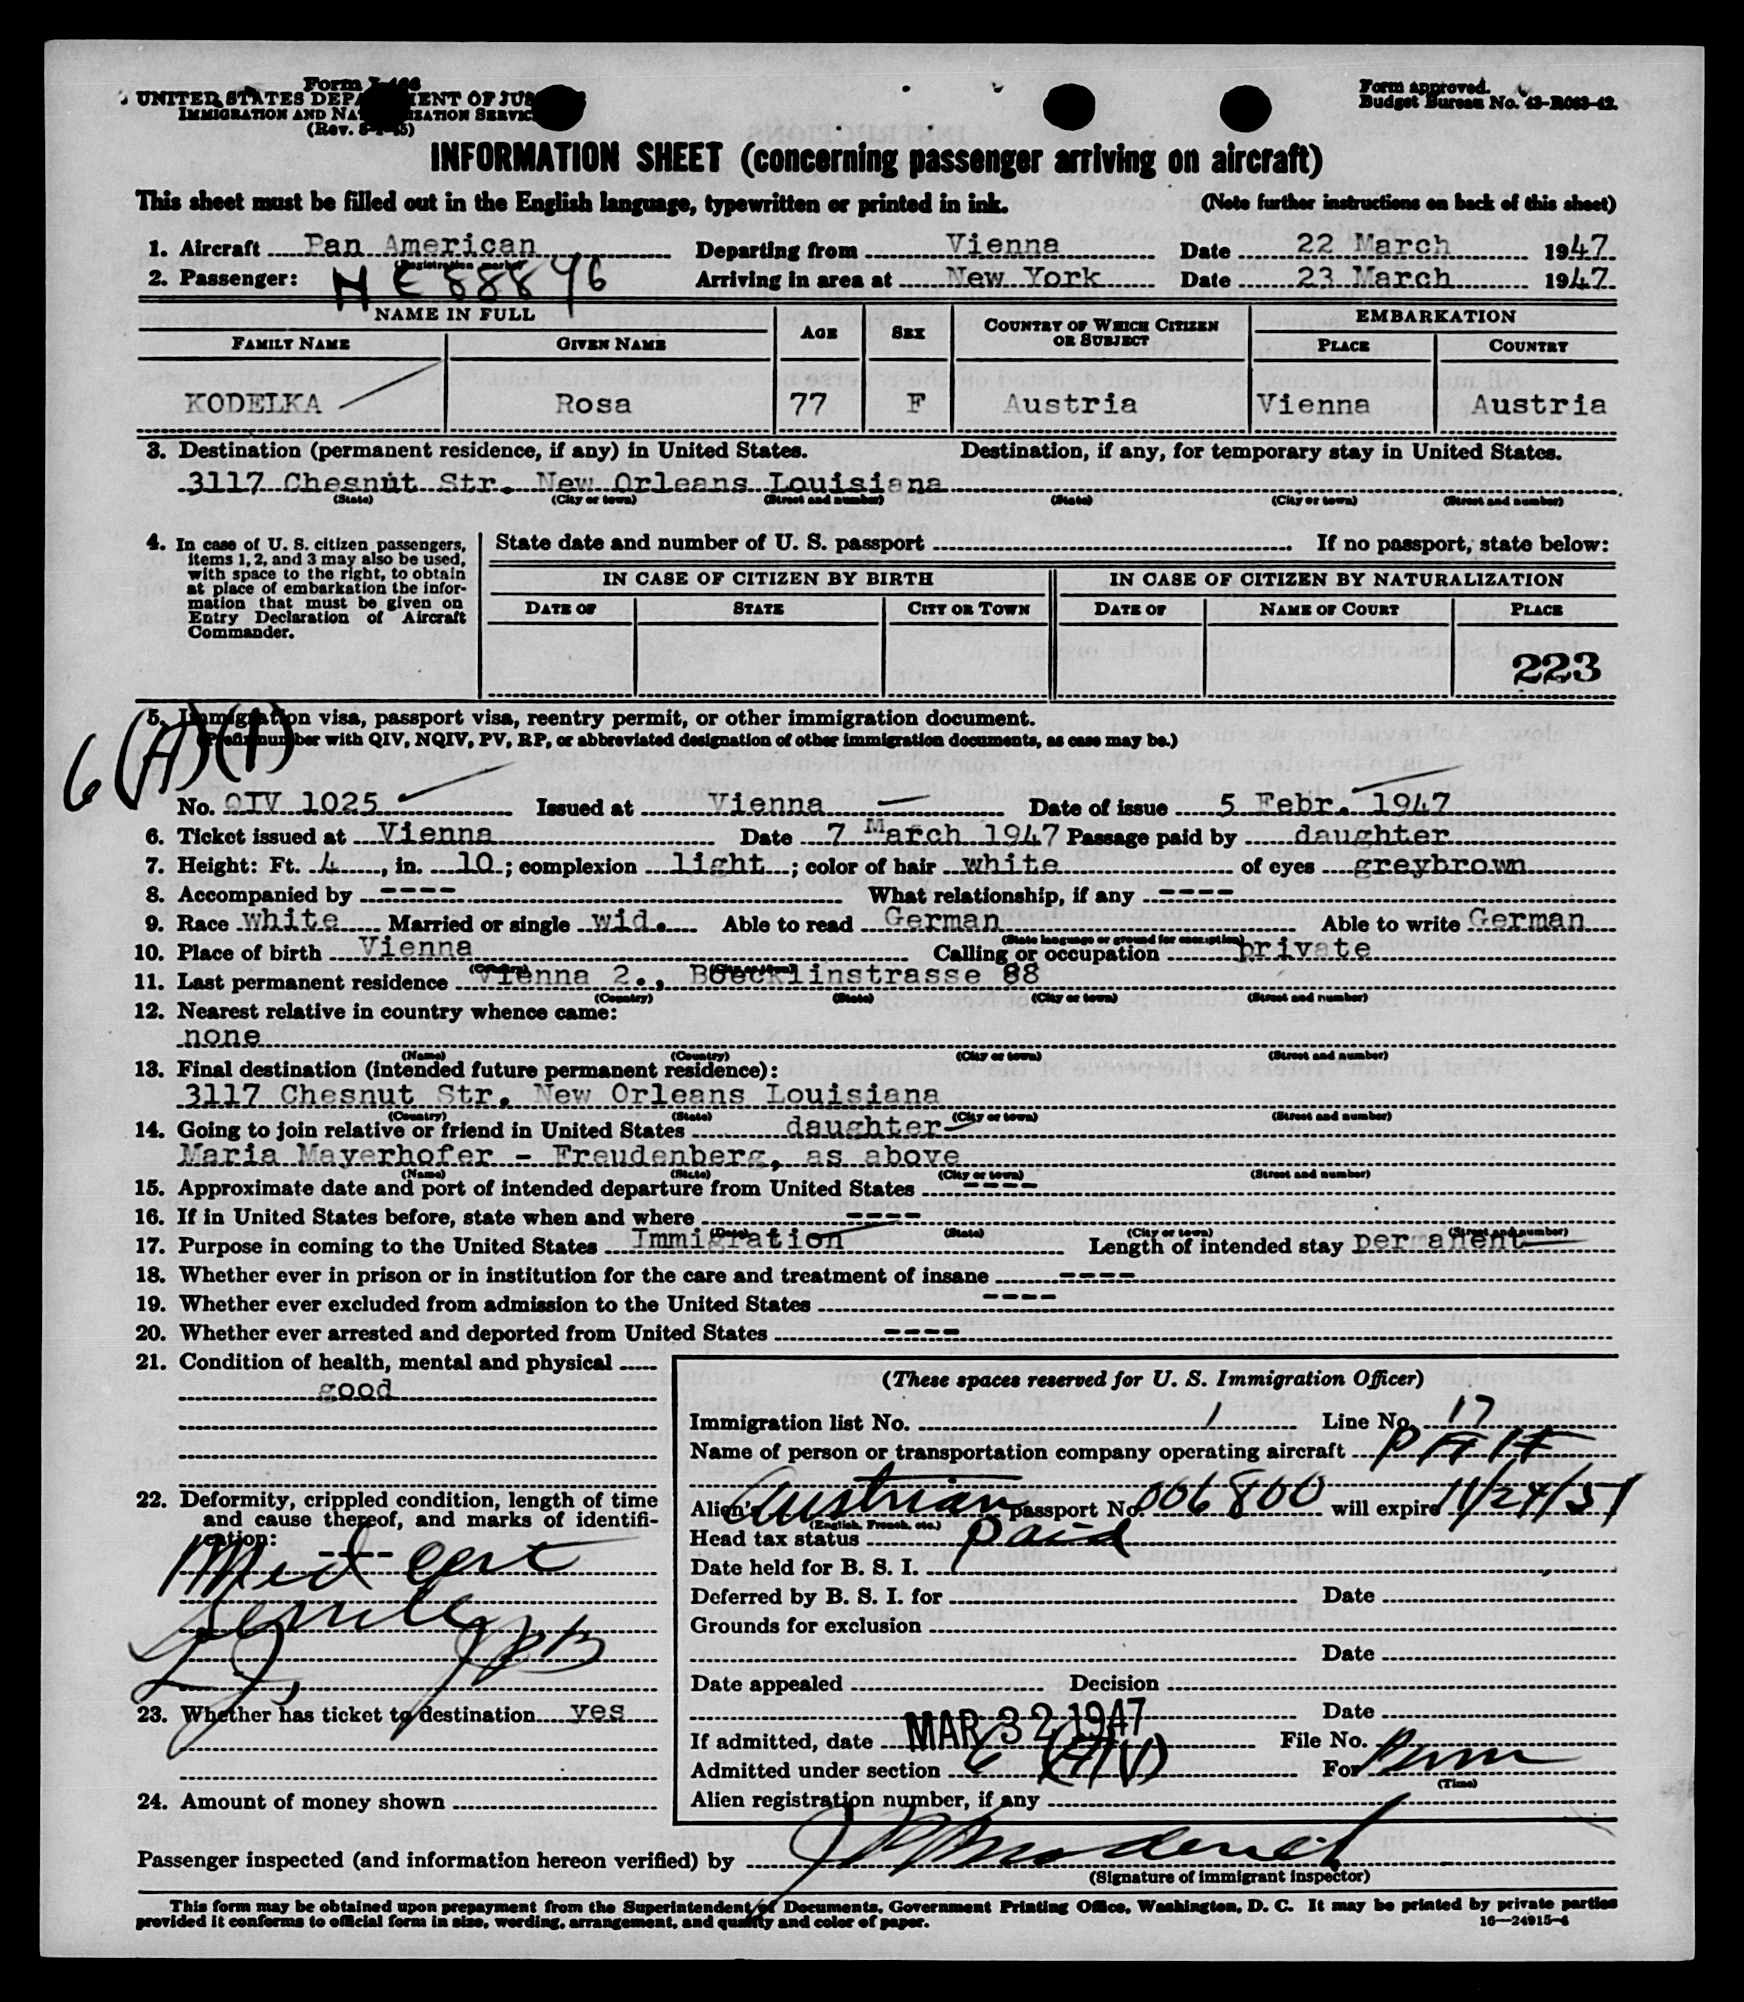 Form I-466
UNITED STATES DEPARTMENT OF JUSTICE
IMMIGRATION AND NATURALIZATION SERVICE
(Rev. 5-1-45)
Form approved.
Budget Bureau No. 43-R063-42.
INFORMATION SHEET (concerning passenger arriving on aircraft)
This sheet must be filled out in the English language, typewritten or printed in ink. (Note further instructions on back of this sheet)
1. Aircraft Pan American Departing from Vienna Date 22 March 1947
(Registration mark)
2. Passenger: Arriving in area at New York Date 23 March 1947
NAME IN FULL AGE SEX COUNTRY OF WHICH CITIZEN OR SUBJECT EMBARKATION
FAMILY NAME GIVEN NAME PLACE COUNTRY
KODELKA Rosa 77 F Austria Vienna Austria
3. Destination (permanent residence, if any) in United States. Destination, if any, for temporary stay in United States.
3117 Chesnut Str. New Orleans Louisiana
(State) (City or town) (Street and number) (State) (City or town) (Street and number)
4. In case of U. S. citizen passengers, items 1, 2, and 3 may also be used, with space to the right, to obtain at place of embarkation the information that must be given on Entry Declaration of Aircraft Commander.
State date and number of U. S. passport If no passport, state below:
IN CASE OF CITIZEN BY BIRTH IN CASE OF CITIZEN BY NATURALIZATION
DATE OF STATE CITY OR TOWN DATE OF NAME OF COURT PLACE
223
5. Immigration visa, passport visa, reentry permit, or other immigration document.
(Prefix number with QIV, NQIV, PV, RP, or abbreviated designation of other immigration documents, as case may be.)
6(A)(1)
No. QIV 1025 Issued at Vienna Date of issue 5 Febr. 1947
6. Ticket issued at Vienna Date 7 March 1947 Passage paid by daughter
7. Height: Ft. 4, in. 10; complexion light; color of hair white of eyes greybrown
8. Accompanied by ---- What relationship, if any ----
9. Race white Married or single wid. Able to read German Able to write German
(State language or ground for exemption)
10. Place of birth Vienna Calling or occupation private
(Country) (City or town)
11. Last permanent residence Vienna 2., Boecklinstrasse 88
(Country) (State) (City or town) (Street and number)
12. Nearest relative in country whence came:
none
(Name) (Country) (City or town) (Street and number)
13. Final destination (intended future permanent residence):
3117 Chesnut Str. New Orleans Louisiana
(Country) (State) (City or town) (Street and number)
14. Going to join relative or friend in United States daughter
Maria Mayerhofer - Freudenberg, as above
(Name) (State) (City or town) (Street and number)
15. Approximate date and port of intended departure from United States ----
16. If in United States before, state when and where ----
(Date) (State) (City or town) (Street and number)
17. Purpose in coming to the United States Immigration Length of intended stay permanent
18. Whether ever in prison or in institution for the care and treatment of insane ----
19. Whether ever excluded from admission to the United States ----
20. Whether ever arrested and deported from United States ----
21. Condition of health, mental and physical
good
22. Deformity, crippled condition, length of time and cause thereof, and marks of identification: ----
Med cert
23. Whether has ticket to destination yes
24. Amount of money shown
(These spaces reserved for U. S. Immigration Officer)
Immigration list No. 1 Line No. 17
Name of person or transportation company operating aircraft
Alien's Austrian passport No. 006800 will expire 11/24/51
(English, French, etc.)
Head tax status paid
Date held for B. S. I.
Deferred by B. S. I. for Date
Grounds for exclusion
Date
Date appealed Decision
Date
If admitted, date MAR 1947 File No.
Admitted under section For Perm
(Time)
Alien registration number, if any
Passenger inspected (and information hereon verified) by
(Signature of immigrant inspector)
This form may be obtained upon prepayment from the Superintendent of Documents, Government Printing Office, Washington, D. C. It may be printed by private parties
provided it conforms to official form in size, wording, arrangement, and quality and color of paper. 16—24915-4